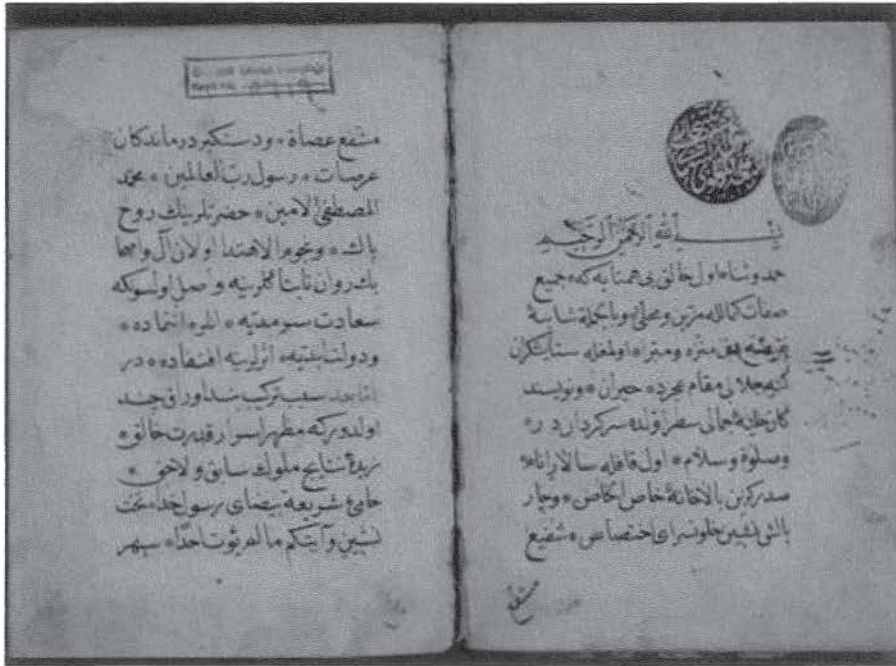 بسم الله الرحمن الرحيم
حمد وثناء اول خالق بی همتایه که جمیع
صفات کمالله مزین ومحلی وبالجمله شایبهٔ
منزه ومبرا اولمغله ستایشکران
کنه جلالی مقام عجزده حیران ونویسند
کان جمالی سطر اولده سرکردان در
وصلوة وسلام اول قافله سالار انام
صدرکزین بالاخانهٔ خاص الخاص وچار
بالش نشین خلوتسرای اختصاص شفیع
مشفع
مشفع عصاة ودستکیر درماندکان
عرصات رسول رب العالمین محمد
المصطفی الامین حضرتلرینك روح
پاك ونجوم الاهتدا اولان آل واصحا
بك روان تابناکلرینه واصل اولسونکه
سعادت سرمدیه انلره انتماده
ودولت ابدیه اثرلرینه اقتفاده در
اما بعد سبب ترکیب بند اوراق چند
اولدورکه مظهر اسرار قدرت خالق
زبدهٔ نتایج ملوك سابق ولاحق
حامئ شریعه بیضای رسول خدا تخت
نشین وآتیکم ما لم یؤت احدا سپهر